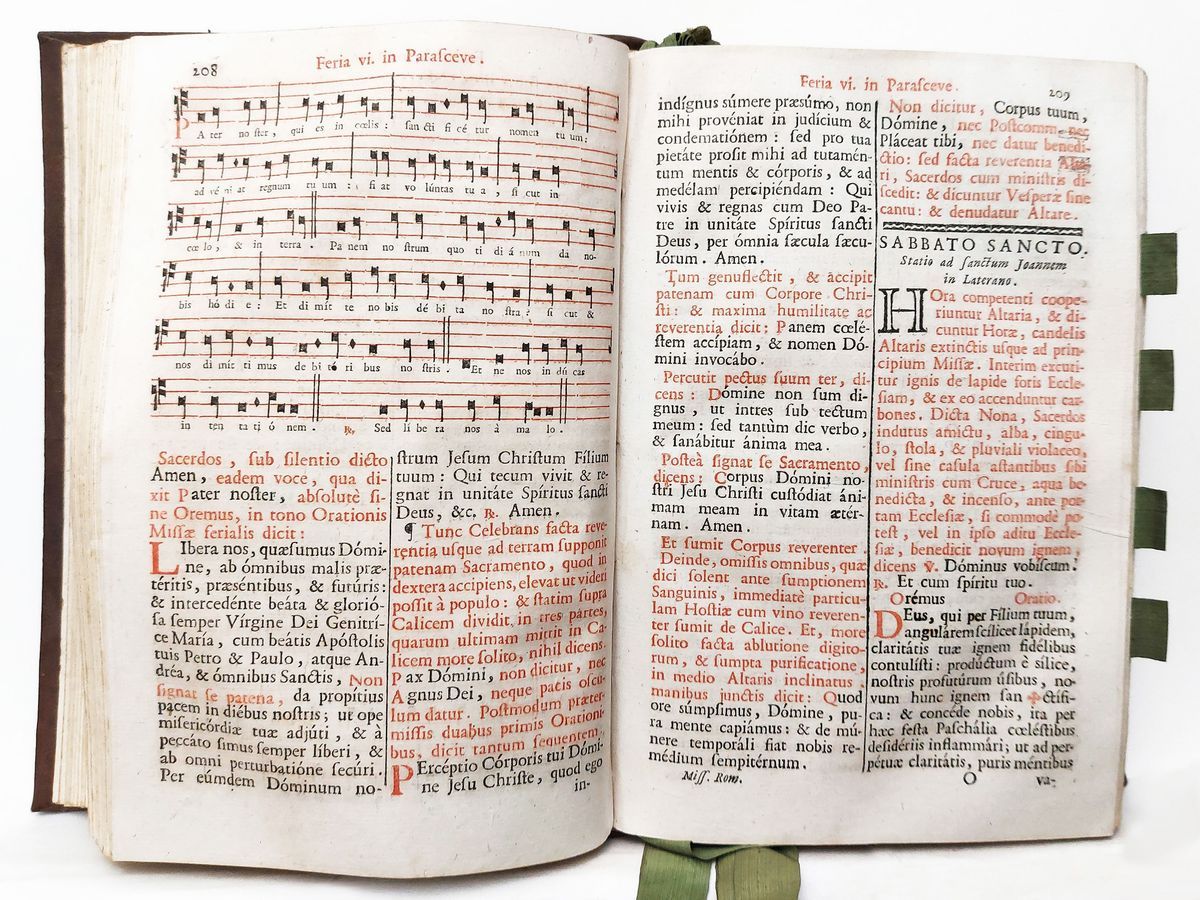 208
Feria vi. in Paraſceve.
PAter noſter, qui es in cœlis: ſanctificétur nomen tuum:
advéniat regnum tuum: fiat volúntas tua, ſicut in
cœlo, & in terra. Panem noſtrum quotidiánum da no-
bis hódie: Et dimítte nobis débita noſtra: ſicut &
nos dimíttimus debitóribus noſtris. Et ne nos indúcas
in tentatiónem. ℟. Sed líbera nos à malo.
Sacerdos, ſub ſilentio dicto
Amen, eadem voce, qua di-
xit Pater noſter, abſolutè ſi-
ne Oremus, in tono Orationis
Miſſæ ferialis dicit:
LIbera nos, quæſumus Dómi-
ne, ab ómnibus malis præ-
téritis, præſéntibus, & futúris:
& intercedénte beáta & glorió-
ſa ſemper Vírgine Dei Genitrí-
ce María, cum beátis Apóſtolis
tuis Petro & Paulo, atque An-
dréa, & ómnibus Sanctis, Non
ſignat ſe patena, da propítius
pacem in diébus noſtris; ut ope
miſericórdiæ tuæ adjúti, & à
peccáto ſimus ſemper líberi, &
ab omni perturbatióne ſecúri.
Per eúmdem Dóminum no-
ſtrum Jeſum Chriſtum Fílium
tuum: Qui tecum vivit & re-
gnat in unitáte Spíritus ſancti
Deus, &c. ℟. Amen.
¶ Tunc Celebrans facta reve-
rentia uſque ad terram ſupponit
patenam Sacramento, quod in
dextera accipiens, elevat ut videri
poſſit à populo: & ſtatim ſupra
Calicem dividit in tres partes,
quarum ultimam mittit in Ca-
licem more ſolito, nihil dicens.
Pax Dómini, non dicitur, nec
Agnus Dei, neque pacis oſcu-
lum datur. Poſtmodum præter-
miſſis duabus primis Orationi-
bus, dicit tantum ſequentem.
PErcéptio Córporis tui Dómi-
ne Jeſu Chriſte, quod ego
in-
Feria vi. in Paraſceve.
209
indígnus súmere præsúmo, non
mihi provéniat in judícium &
condemnatiónem: ſed pro tua
pietáte proſit mihi ad tutamén-
tum mentis & córporis, & ad
medélam percipiéndam: Qui
vivis & regnas cum Deo Pa-
tre in unitáte Spíritus ſancti
Deus, per ómnia ſæcula ſæcu-
lórum. Amen.
Tum genuflectit, & accipit
patenam cum Corpore Chri-
ſti: & maxima humilitate ac
reverentia dicit: Panem cœlé-
ſtem accípiam, & nomen Dó-
mini invocábo.
Percutit pectus ſuum ter, di-
cens: Dómine non ſum di-
gnus, ut intres ſub tectum
meum: ſed tantùm dic verbo,
& ſanábitur ánima mea.
Poſteà ſignat ſe Sacramento,
dicens: Corpus Dómini no-
ſtri Jeſu Chriſti cuſtódiat áni-
mam meam in vitam ætér-
nam. Amen.
Et ſumit Corpus reverenter.
Deinde, omiſſis omnibus, quæ
dici ſolent ante ſumptionem
Sanguinis, immediatè particu-
lam Hoſtiæ cum vino reveren-
ter ſumit de Calice. Et, more
ſolito facta ablutione digito-
rum, & ſumpta purificatione,
in medio Altaris inclinatus,
manibus junctis dicit: Quod
ore súmpſimus, Dómine, pu-
ra mente capiámus: & de mú-
nere temporáli fiat nobis re-
médium ſempitérnum.
Miſſ. Rom.
Non dicitur, Corpus tuum,
Dómine, nec Poſtcomm. nec
Pláceat tibi, nec datur benedi-
ctio: ſed facta reverentia Alta-
ri, Sacerdos cum miniſtris di-
ſcedit: & dicuntur Veſperæ ſine
cantu: & denudatur Altare.
SABBATO SANCTO.
Statio ad ſanctum Joannem
in Laterano.
HOra competenti coope-
riuntur Altaria, & di-
cuntur Horæ, candelis
Altaris extinctis uſque ad prin-
cipium Miſſæ. Interim excuti-
tur ignis de lapide foris Eccle-
ſiam, & ex eo accenduntur car-
bones. Dicta Nona, Sacerdos
indutus amictu, alba, cingu-
lo, ſtola, & pluviali violaceo,
vel ſine caſula aſtantibus ſibi
miniſtris cum Cruce, aqua be-
nedicta, & incenſo, ante por-
tam Eccleſiæ, ſi commodè po-
teſt, vel in ipſo aditu Eccle-
ſiæ, benedicit novum ignem,
dicens ℣. Dóminus vobíſcum.
℟. Et cum ſpíritu tuo.
Orémus Oratio.
DEus, qui per Fílium tuum,
angulárem ſcílicet lápidem,
claritátis tuæ ignem fidélibus
contulíſti: prodúctum è sílice,
noſtris profutúrum úſibus, no-
vum hunc ignem ſan✠ctífi-
ca: & concéde nobis, ita per
hæc feſta Paſchália cœléſtibus
deſidériis inflammári; ut ad per-
pétuæ claritátis, puris méntibus
O va-